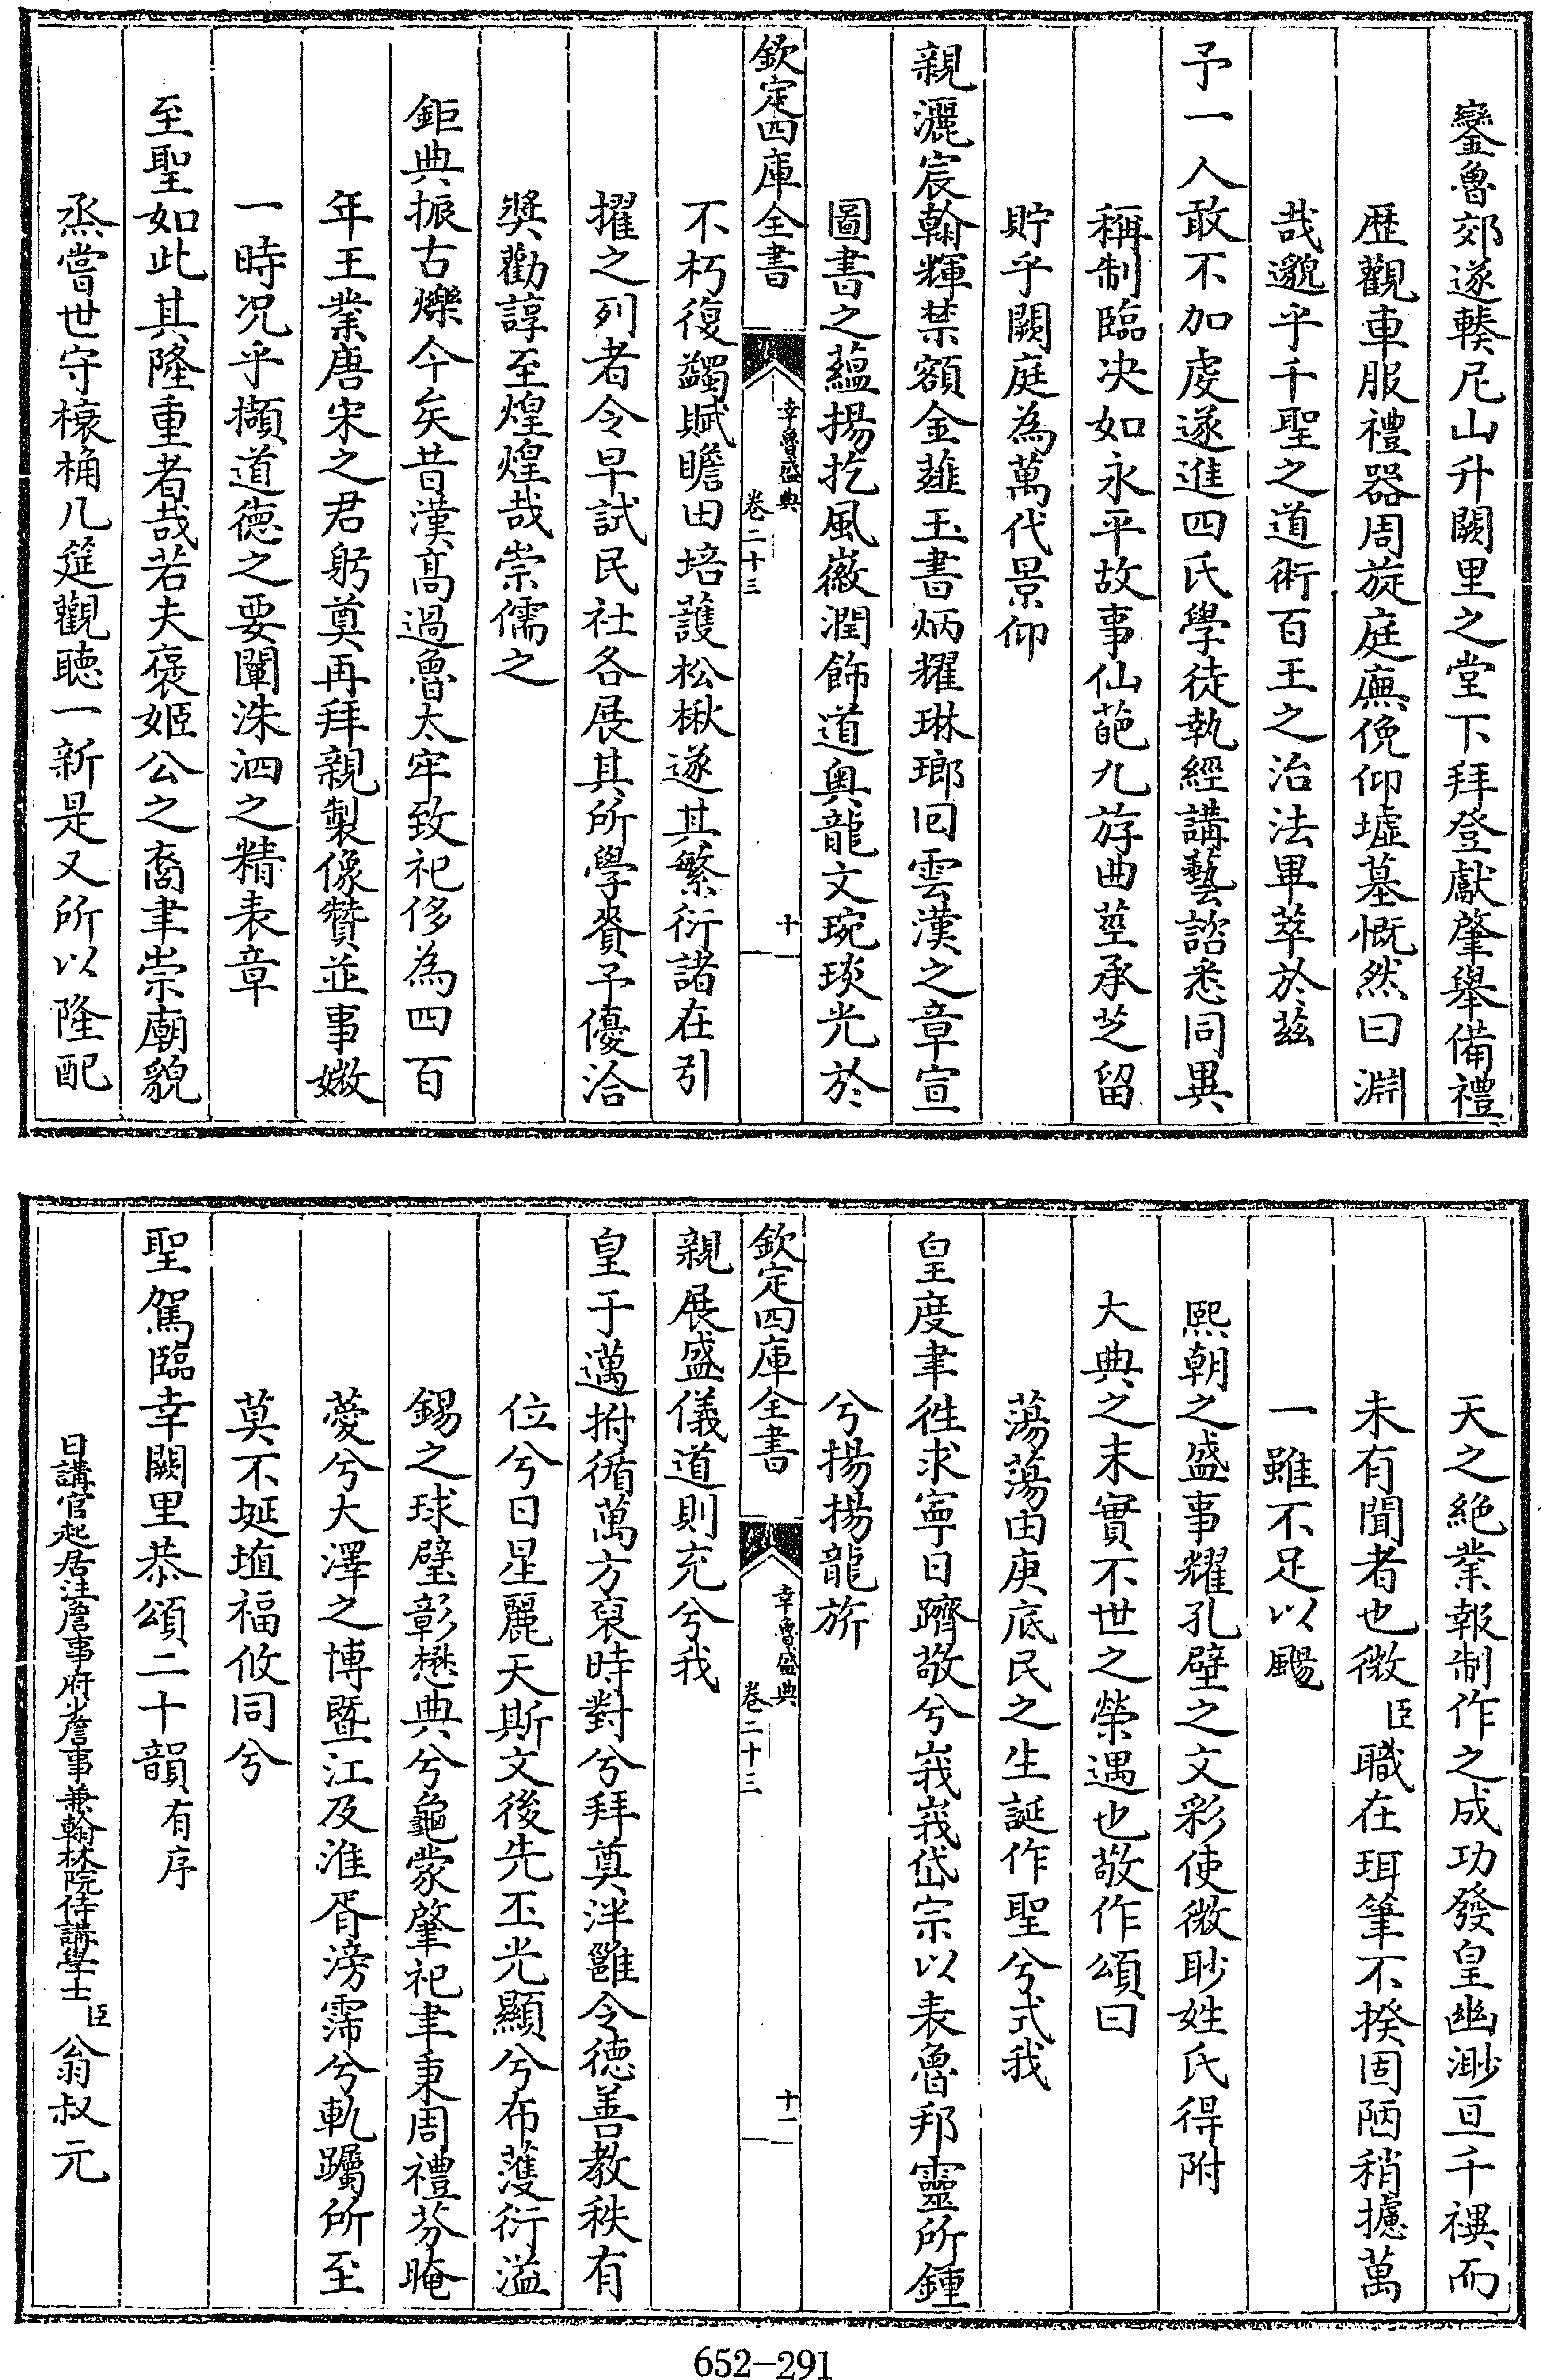 鑾魯郊遂轃尼山升闕里之堂下拜登獻肇舉備禮
歴觀車服禮器周旋庭廡俛仰墟墓慨然曰淵
哉邈乎千聖之道術百王之治法畢萃於兹
予一人敢不加虔遂進四氏學徒執經講藝諮悉同異
稱制臨决如永平故事仙葩九斿曲莖承芝留
貯乎闕庭為萬代景仰
親灑宸翰輝禁額金薤玉書炳耀琳瑯囘雲漢之章宣
圖書之藴揚扢風徽潤飾道奥龍文琬琰光於
欽定四庫全書
幸魯盛典
卷二十三
十
不朽復蠲賦瞻田培䕶松楸遂其繁衍諸在引
擢之列者令早試民社各展其所學賚予優洽
奨勸諄至煌煌哉崇儒之
鉅典振古爍今矣昔漢髙過魯太牢致祀侈為四百
年王業唐宋之君躬奠再拜親製像贊並事媺
一時况乎擷道徳之要闡洙泗之精表章
至聖如此其隆重者哉若夫褒姬公之裔聿崇廟貌
烝嘗世守榱桷几筵觀聽一新是又所以隆配
天之絶業報制作之成功發皇幽渺亘千禩而
未有聞者也微臣職在珥筆不揆固陋稍攄萬
一雖不足以颺
熙朝之盛事耀孔壁之文彩使微眇姓氏得附
大典之末實不世之榮遇也敬作頌曰
蕩蕩由庚底民之生誕作聖兮式我
皇度聿徃求寧日躋敬兮峩峩岱宗以表魯邦靈所鍾
兮揚揚龍旂
欽定四庫全書
幸魯盛典
卷二十三
十一
親展盛儀道則充兮我
皇于邁拊循萬方裒時對兮拜奠泮雝令徳善教秩有
位兮日星麗天斯文後先丕光顯兮布濩衍溢
錫之球璧彰懋典兮龜蒙肇祀聿秉周禮芬晻
薆兮大澤之博暨江及淮胥滂霈兮軌躅所至
莫不埏埴福攸同兮
聖駕臨幸闕里恭頌二十韻有序
日講官起居注詹事府少詹事兼翰林院侍講學士臣翁叔元
652-291